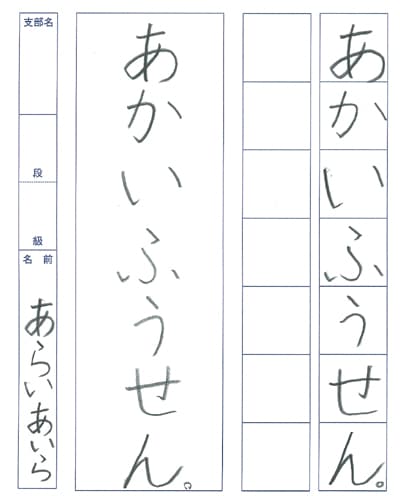 あかいふうせん。
あかいふうせん。
支部名
段
級
名前
あらいあいら